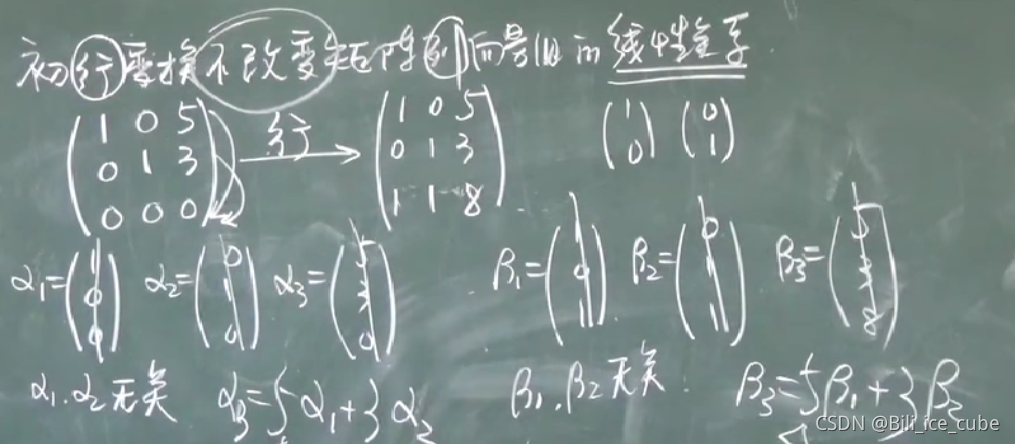 初行变换不改变矩阵列向量组的线性关系.
(1 0 5
0 1 3
0 0 0) 行→ (1 0 5
0 1 3
1 1 8) (1
0) (0
1)
α₁=(1
0
0) α₂=(0
1
0) α₃=(5
3
0) β₁=(1
0
1) β₂=(0
1
1) β₃=(5
3
8)
α₁.α₂无关 α₃=5α₁+3α₂ β₁.β₂无关. β₃=5β₁+3β₂
CSDN @Bili_ice_cube